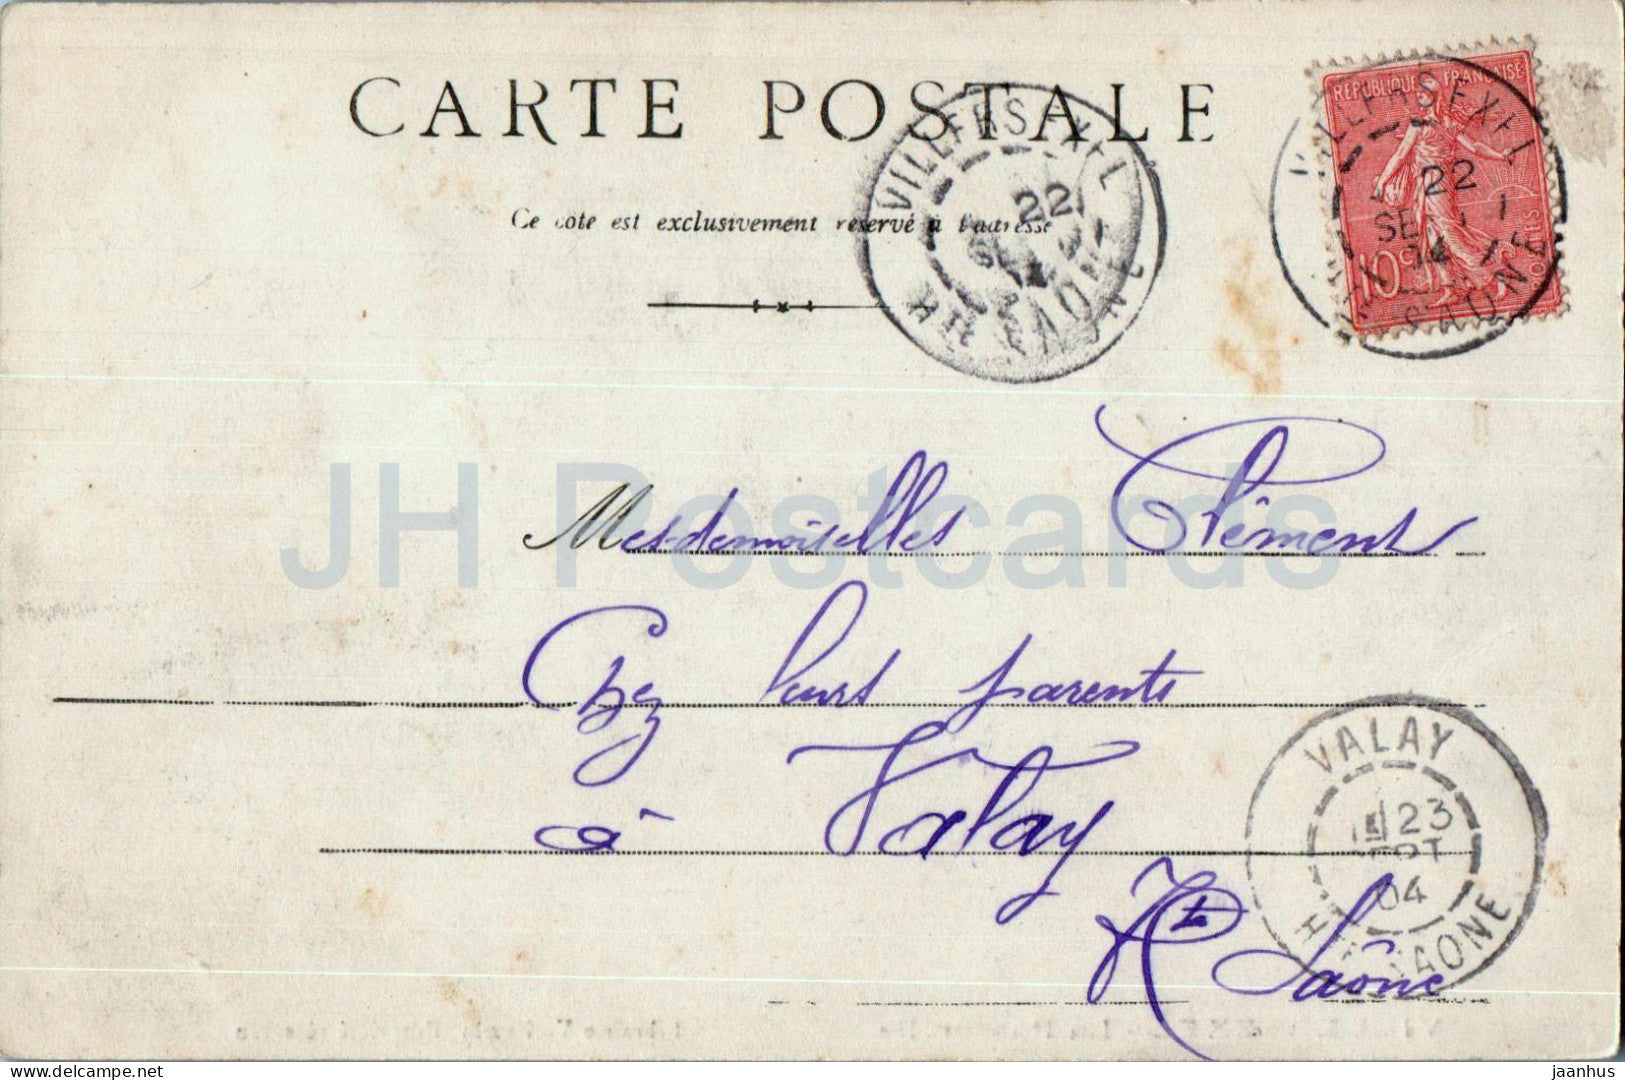 CARTE POSTALE
Ce côté est exclusivement réservé à l'adresse
RÉPUBLIQUE FRANÇAISE
POSTES
10c
VILLERSEXEL
22
SEPT
04
Hte SAONE
VILLERSEXEL
22
Hte SAONE
JH Postcards
Mesdemoiselles Clément
Chez leurs parents
à Valay
Hte Saône
VALAY
23
SEPT
04
Hte SAONE
delcampe.net
jaanhus